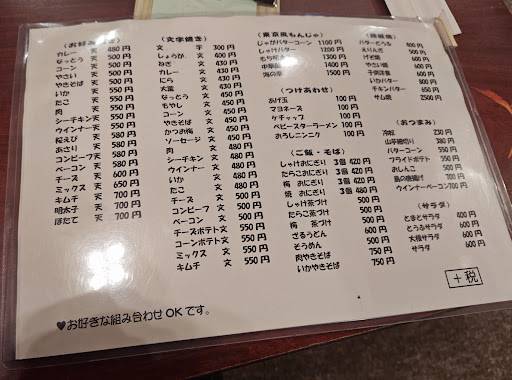 (お好み焼き)
カレー 天 480円
なっとう 天 500円
コーン 天 500円
やさい 天 500円
やきそば 天 500円
いか 天 550円
たこ 天 550円
肉 天 550円
シーチキン 天 550円
ウインナー 天 550円
桜えび 天 550円
あさり 天 580円
コンビーフ 天 580円
ベーコン 天 580円
チーズ 天 600円
ミックス 天 650円
キムチ 天 700円
明太子 天 700円
ほたて 天 700円
(文字焼き)
文 字 300円
しょうが 文 400円
ねぎ 文 430円
カレー 文 430円
にら 文 430円
大葉 文 430円
なっとう 文 450円
もやし 文 450円
コーン 文 450円
やきそば 文 450円
かつお梅 文 450円
ソーセージ 文 450円
肉 文 480円
シーチキン 文 480円
ウインナー 文 480円
いか 文 480円
たこ 文 480円
コンビーフ 文 550円
ベーコン 文 550円
チーズポテト 文 550円
コーンポテト 文 550円
ミックス 文 550円
キムチ 文 550円
(東京風もんじゃ)
じゃがバターコーン 1100円
しゃけバター 1200円
もち明太
中華山 1400円
海の幸 1500円
(つけあわせ)
あげ玉 100円
マヨネーズ 100円
ケチャップ 100円
ベビースターラーメン 100円
おろしニンニク 100円
(ご飯・そば)
しゃけおにぎり 3個 420円
たらこおにぎり 3個 420円
梅 おにぎり 3個 420円
焼 おにぎり 3個 420円
しゃけ茶づけ 500円
たらこ茶づけ 500円
梅 茶づけ 500円
ざるうどん 600円
そうめん 500円
肉やきそば 750円
いかやきそば 750円
バターとうふ 400円
えりんぎ 500円
げそ焼
やさい焼
子供洋食
いかバター
チキンバター
サム焼
(おつまみ)
冷奴 230円
山芋細切り 380円
バターコーン 550円
フライドポテト 550円
おしんこ 500円
鳥の唐揚げ
ウインナーベーコン
(サラダ)
とまとサラダ 400円
とうふサラダ 600円
大根サラダ 600円
サラダ 600円
+税
♥お好きな組み合わせOKです。